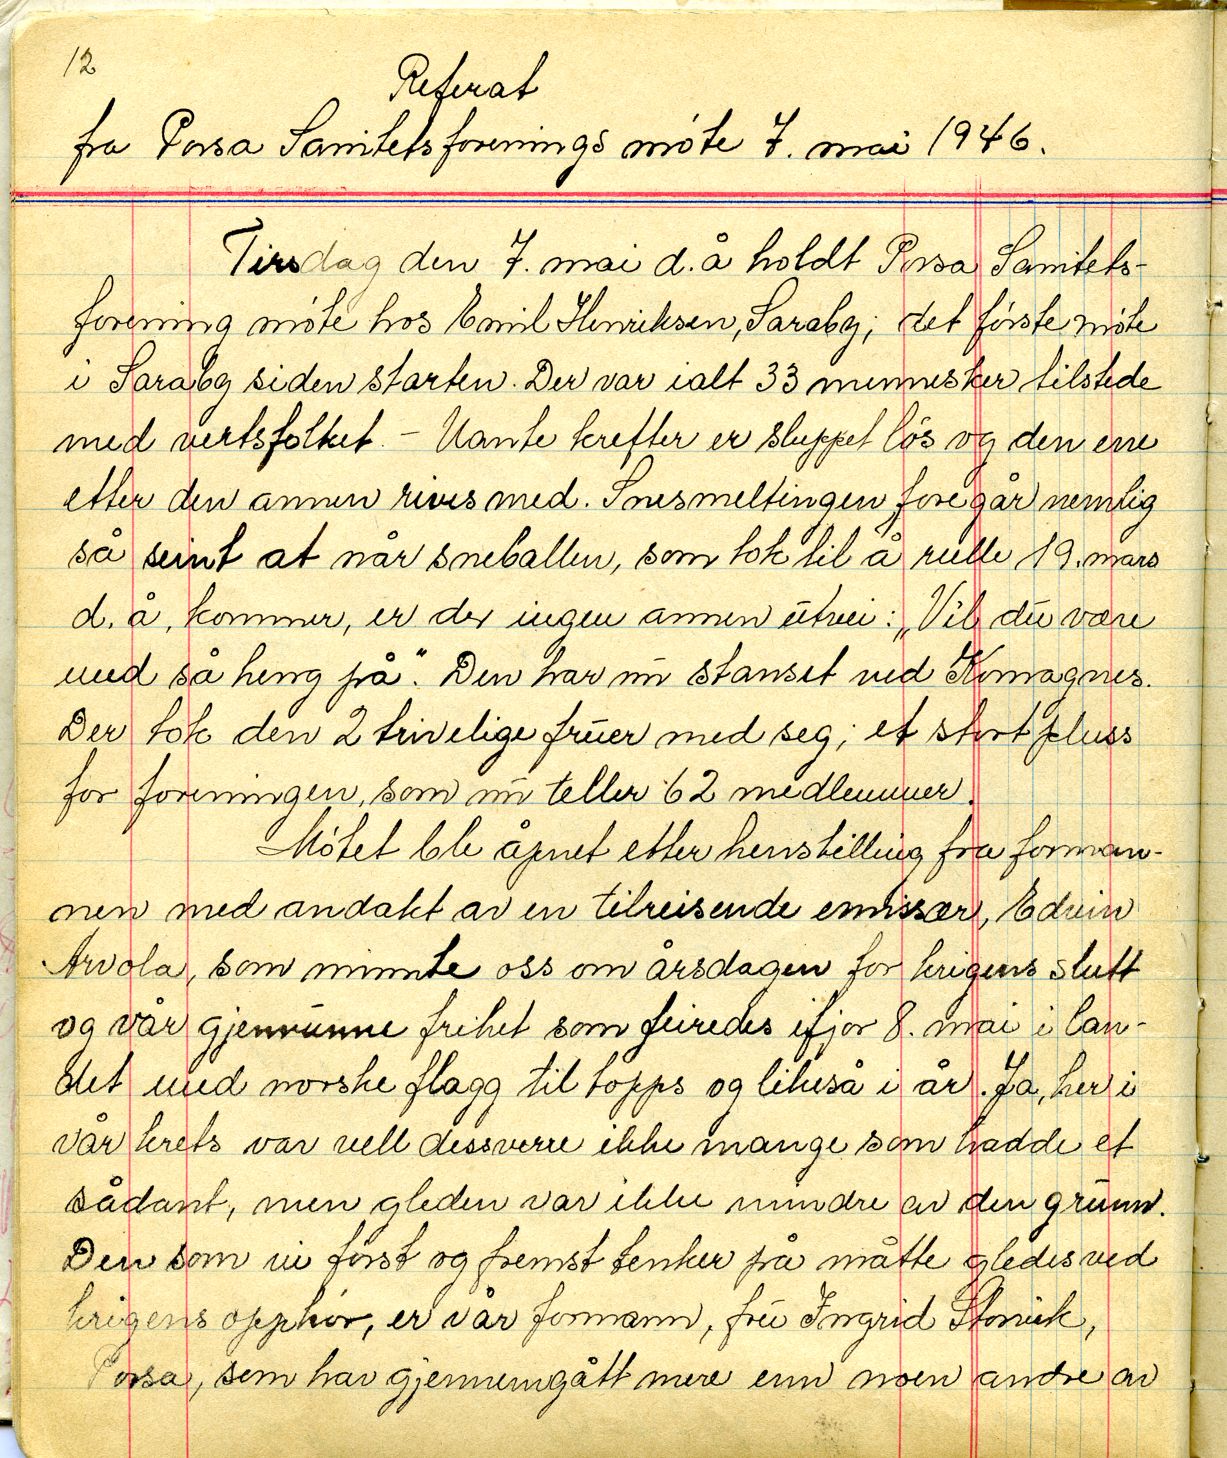 12
Referat
fra Porsa Sanitetsforenings möte 7. mai 1946.
Tirsdag den 7. mai d.å holdt Porsa Sanitets-
forening möte hos Emil Henriksen, Saraby; det förste möte
i Saraby siden starten. Der var ialt 33 mennesker tilstede
med vertsfolket. – Uante krefter er sluppet lös og den ene
etter den annen rives med. Snesmeltingen foregår nemlig
så seint at når sneballen, som tok til å rulle 19. mars
d. å, kommer, er der ingen annen utvei: „Vil du være
med så heng på". Den har nu stanset ved Komagnes.
Der tok den 2 trivelige fruer med seg; et stort pluss
for foreningen, som nu teller 62 medlemmer.
Mötet ble åpnet etter henstilling fra forman-
nen med andakt av en tilreisende emissær, Edvin
Arvola, som minnte oss om årsdagen for krigens slutt
og vår gjenvunne frihet som feiredes ifjor 8. mai i lan-
det med norske flagg til topps og likeså i år. Ja, her i
vår krets var vell dessverre ikke mange som hadde et
sådant, men gleden var ikke mindre av den grunn.
Den som vi först og fremst tenker på måtte gledes ved
krigens opphör, er vår formann, fru Ingrid
Porsa, som har gjennemgått mere enn noen andre av